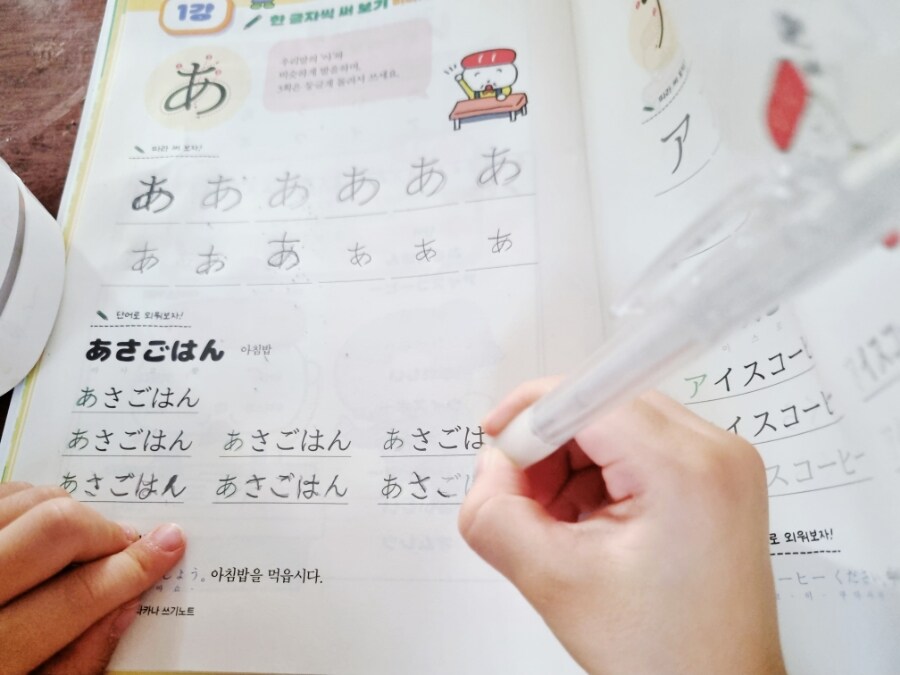 1강
한 글자씩 써 보기
あ
우리말의 '아'와
비슷하게 발음하며,
3획은 둥글게 돌려서 쓰세요.
따라 써 보자!
あ あ あ あ あ あ
あ あ あ あ あ あ
단어로 외워보자!
あさごはん 아침밥
あさごはん
あさごはん あさごはん あさごは
あさごはん あさごはん あさご
ょう。 아침밥을 먹읍시다.
타카나 쓰기노트
따라 써 보
ア
アイスコー
イスコー
スコーヒー
로 외워보자!
ーヒーください。